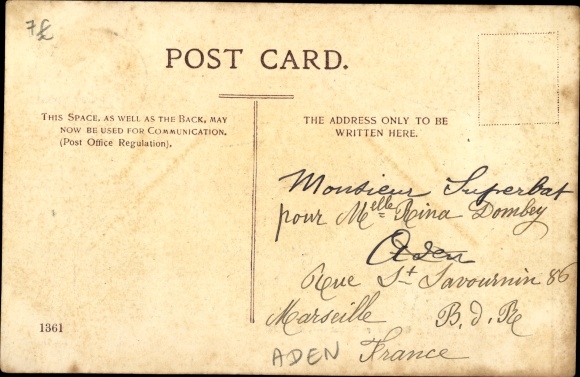 7£
POST CARD.
THIS SPACE, AS WELL AS THE BACK, MAY
NOW BE USED FOR COMMUNICATION.
(Post Office Regulation).
THE ADDRESS ONLY TO BE
WRITTEN HERE.
Monsieur Superbat
pour Melle Rina Dombey
Aden
Rue St Savournin 86
Marseille B.d.R
France
ADEN
1361